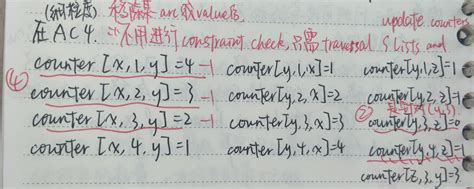 (细粒度) 移除 arc 或 value后,
在 AC4. 不用进行 constraint check, 只需 traversal S lists and update counters
counter [x,1,y]=4 -1 counter[y,1,x]=1 counter[y,1,z]=1
④ counter [x,2,y]=3 -1 counter[y,2,x]=2 counter[y,2,z]=1
counter [x,3,y]=2 -1 counter[y,3,x]=3 ② counter[y,3,z]=0 (y,3)
counter [x,4,y]=1 counter[y,4,x]=4 counter[y,4,z]=1
counter[z,3,y]=3